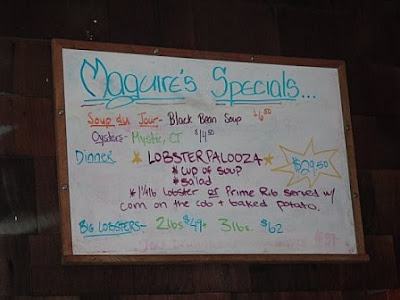 Maguire's Specials...
Soup du Jour- Black Bean Soup $6.50
Oysters- Mystic, CT $14.50
Dinner ★ LOBSTERPALOOZA ★ $29.50
* cup of soup
* salad
* 1 1/4 lb lobster or Prime Rib served w/
corn on the cob + baked potato.
Big Lobsters- 2lbs $49- 3lbs. $62